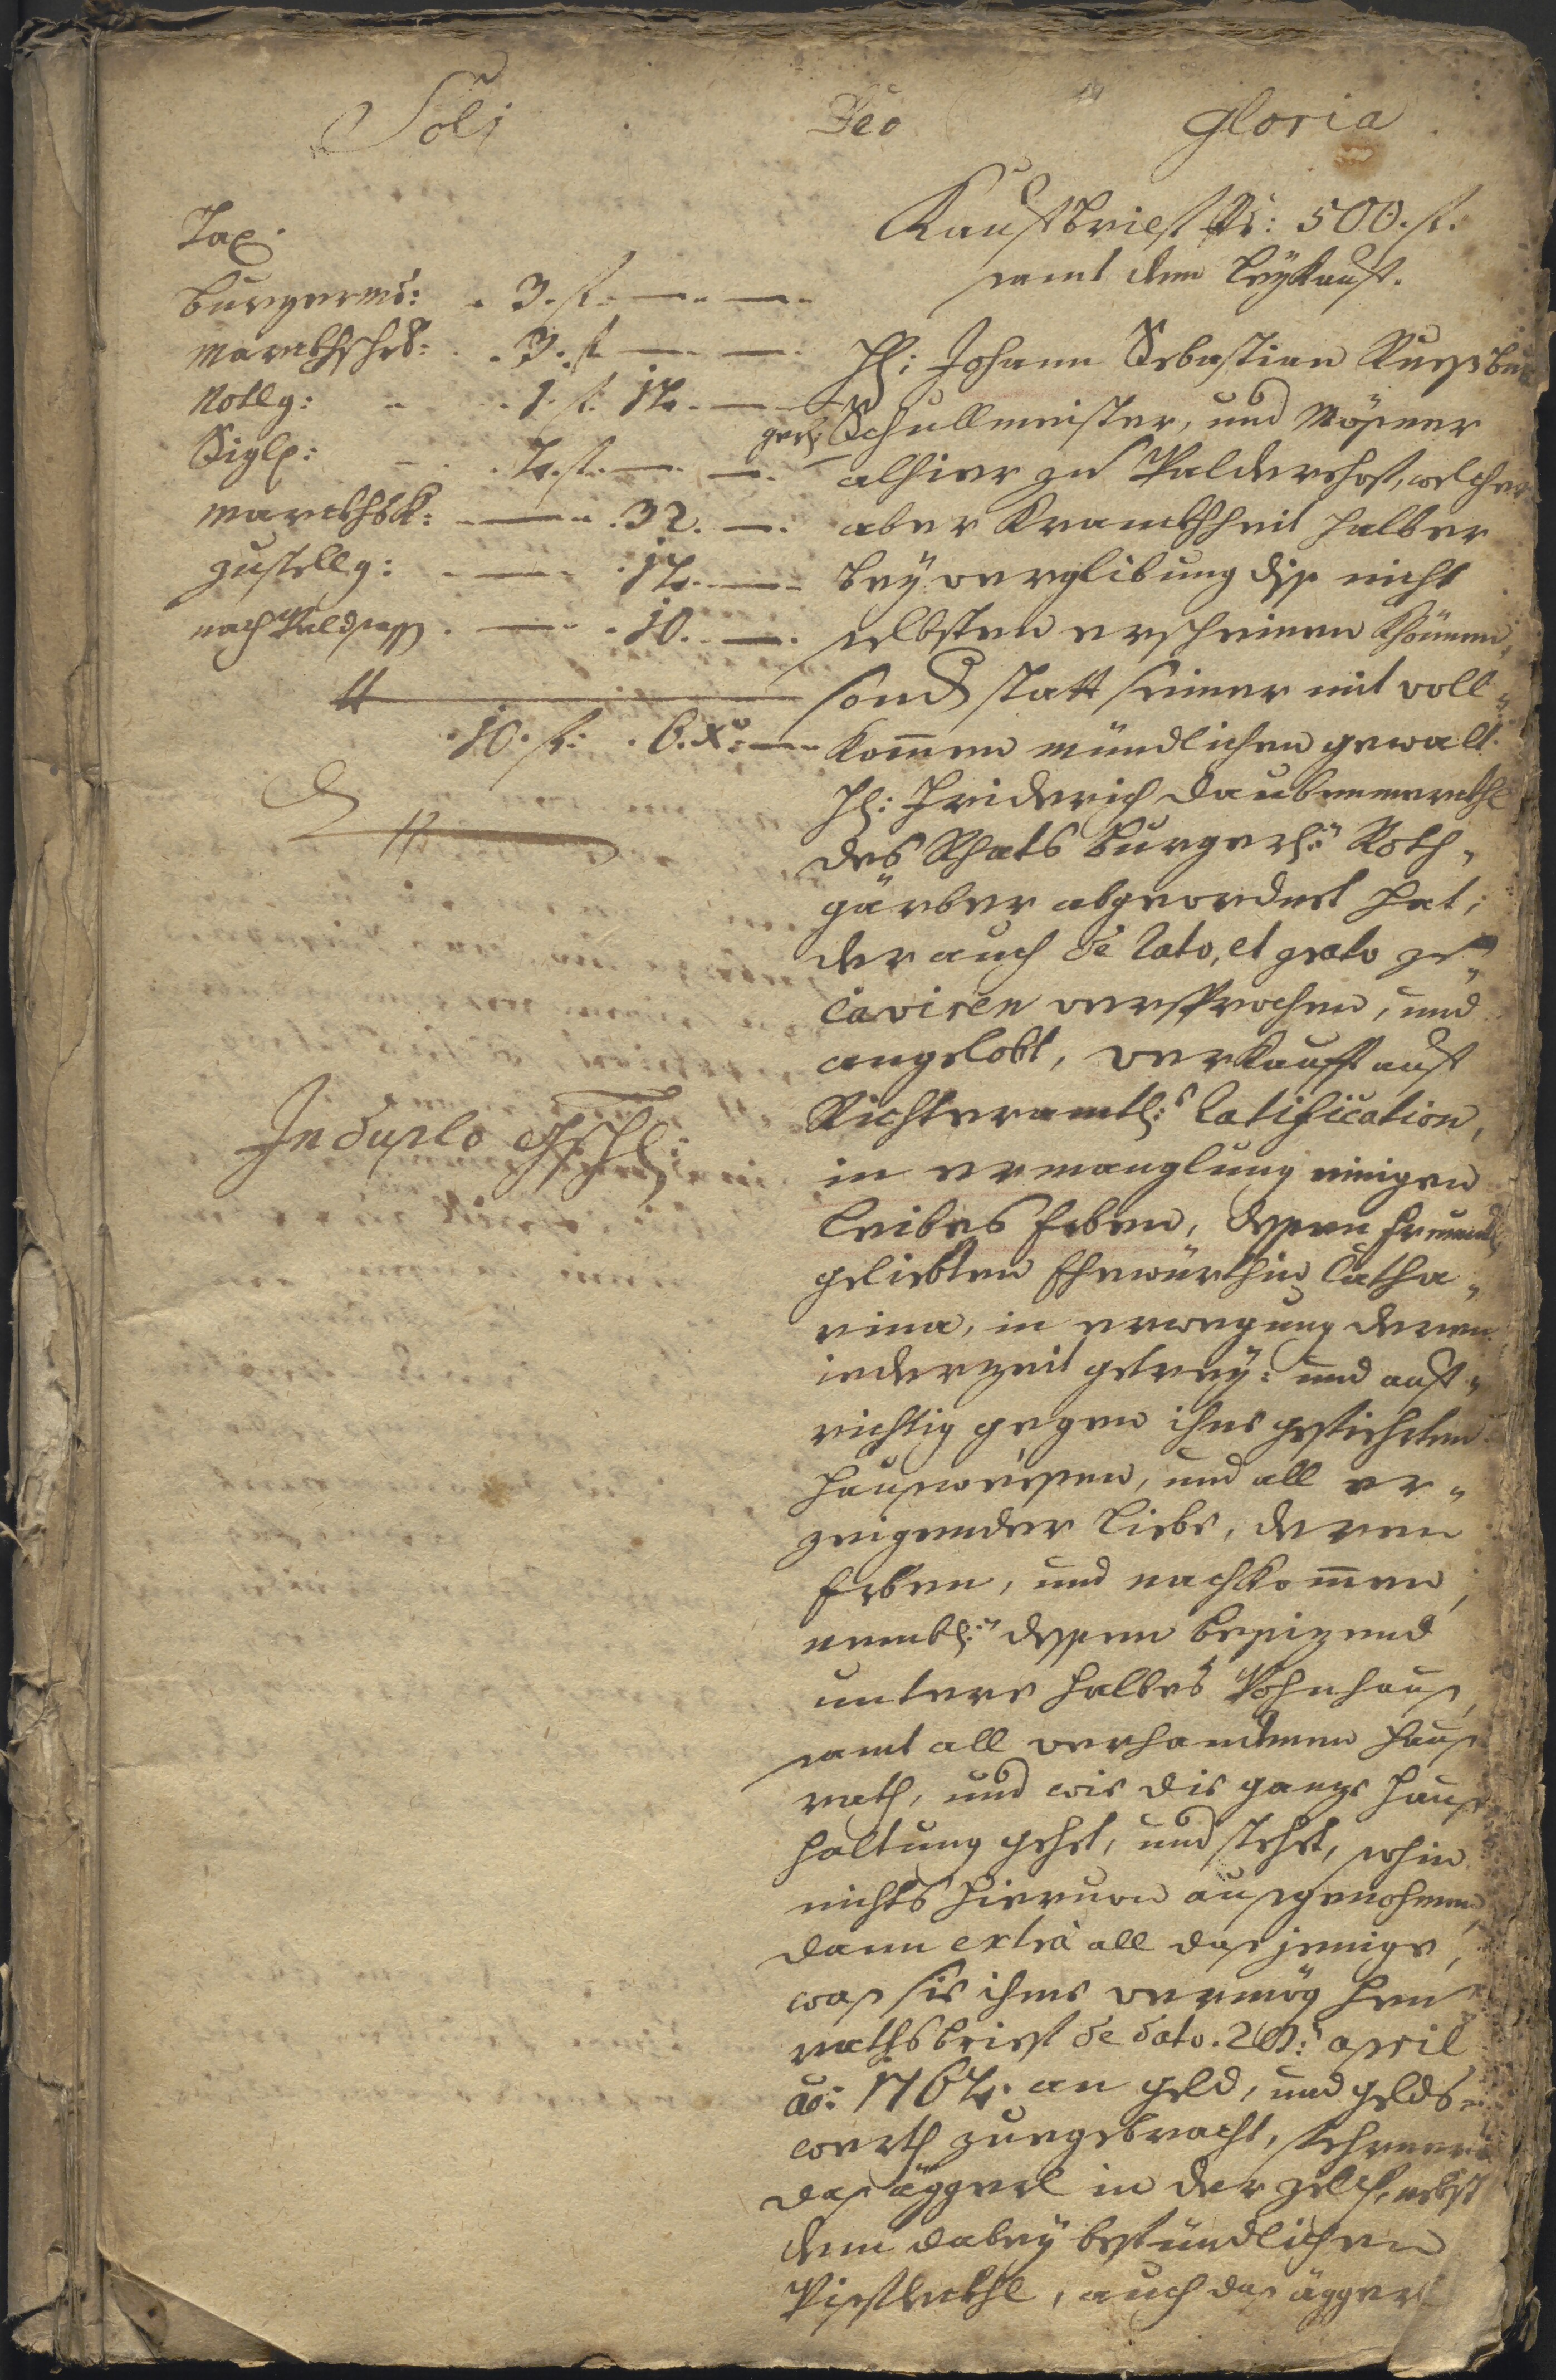 Soli Deo gloria
Tax.
Burgerms: . 3. f. — —
Marckhschrb: . 3. f. — —
Notlg: . 1. f. 14. —
Siglg: . 4. f. — —
Marckhbk: — 32. —
Zustellg: — 14. —
nach Waldsass. — 10. —
10. f. 6. xr. —
In duplo gschr:
Kauffbrieff Pr: 500. f.
samt dem Leykauff.
H: Johann Sebastian
gewes: Schullmeister, und Mößner
alhier zu Waldershof, welcher
aber Kranckhheit halber
bey verglibung diß nicht
selbsten erscheinen khönnen,
sond statt seiner mit voll„
komen mündlichen gewalt
H: Friderich Daubenmerckhl
des Rhats Burgerl: Roth„
gärber abgeordnet hat,
der auch de rato, et grato zu
caviren versprochen, und
angelobt, verkaufft auff
Richteramtl: ratification,
in ermanglung einigen
Leibes Erben, dessen freundl
geliebten Ehewürthin Catha„
rina, in erwegung deren
iederzeit getrey: und auff„
richtig gegen ihne gefiehrten
Haußweesen, und all er„
zeigender Liebe, deren
Erben, und nachkomen,
nembl: dessen besizend
untere halbes Wohnhauß,
samt all verhandtenen Hauß
rath, und wie die ganze Hauß
haltung gehet, und stehet, ohin
nichts hiervon außgenohmen,
dann extra all dasjenige,
was sie ihme vermög Heu
rathsbrieff de dato. 28: april
ao: 1764. an geld, und gelds„
werth zuegebracht,
das äggerl in der Zelch, nebst
dem dabey befündlichen
Wißfleckhl, auch das äggerl